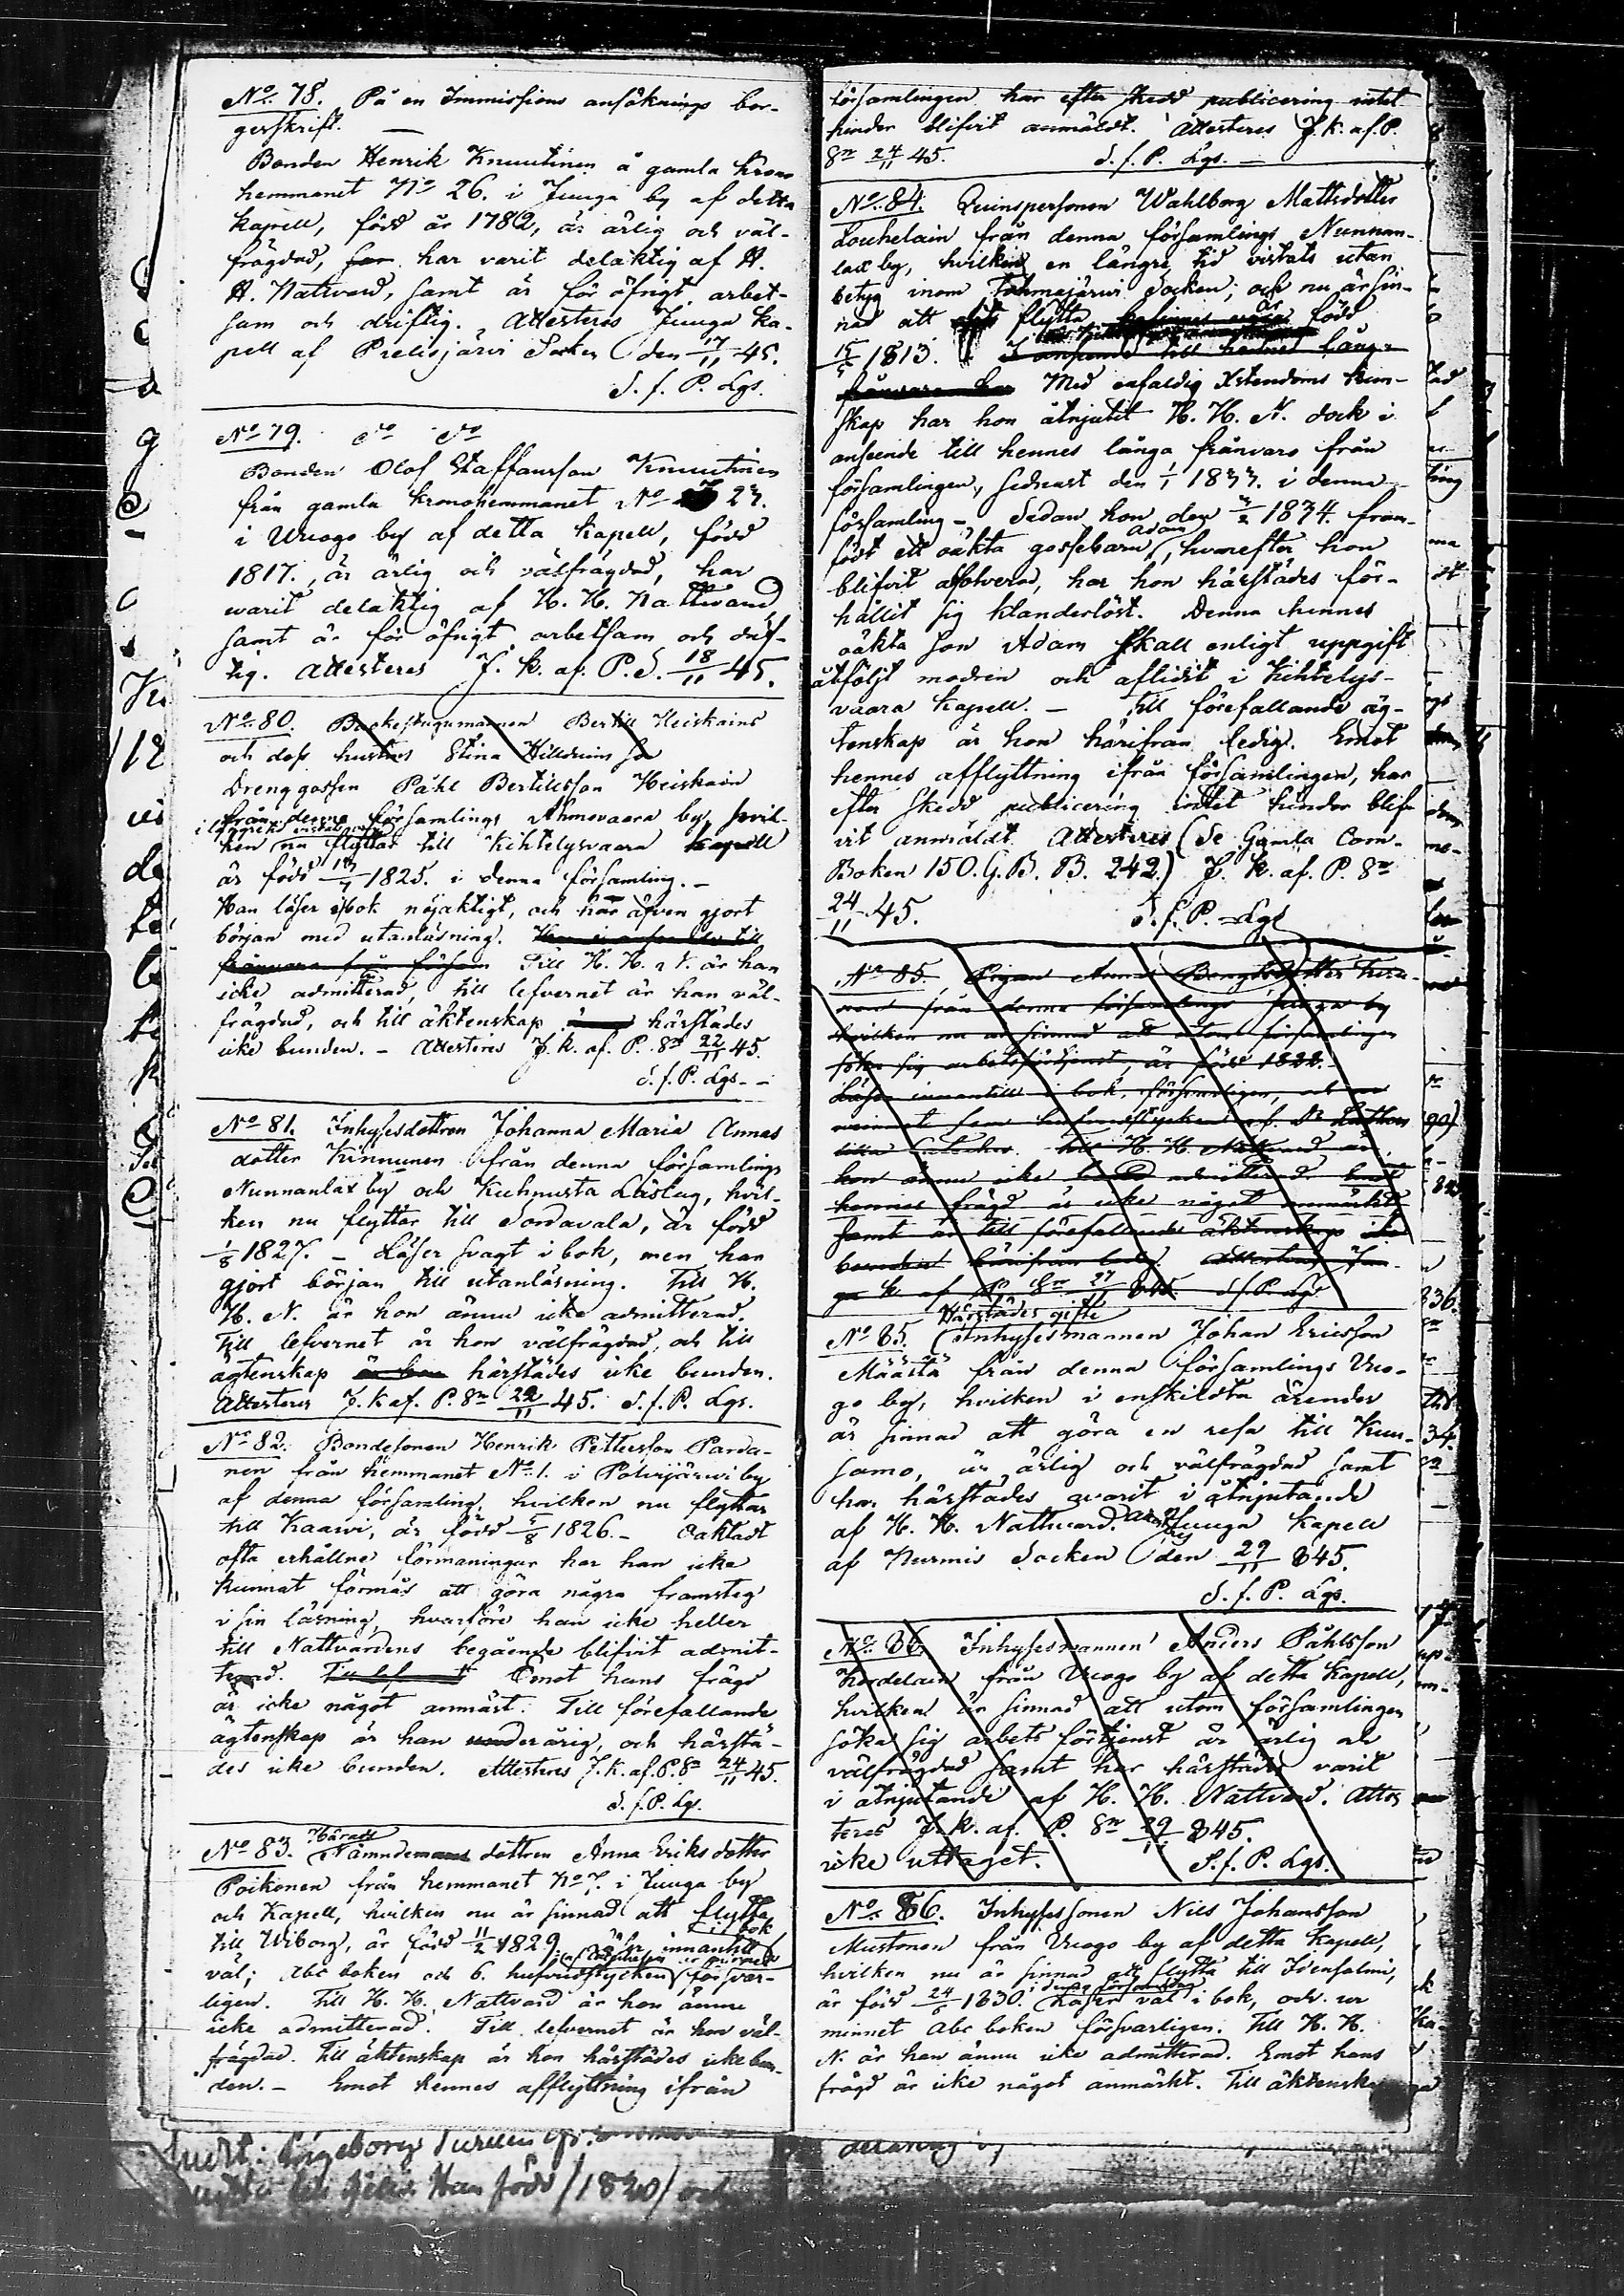 No 78. På en Immissions ansöknings bor-
gesskrift. —
Bonden Henrik Knuutinen å gamla Krono
hemmanet No 26. i Juuga by af detta
kapell, född år 1782, är ärlig och väl-
frägdad, har varit delaktig af H.
H. Nattvard, samt är för öfrigt arbet-
sam och driftig. Attesteras Juuga ka-
pell af Pielisjärvi Socken den 17/11 45.
S. f. P. Lgs.
No 79. do do
Bonden Olof Staffansson Knuutinen
från gamla kronohemmanet No 27.
i Wuogo by af detta kapell, född
1817., är ärlig och välfrägdad, har
warit delaktig af H. H. Nattvard
samt är för öfrigt arbetsam och drif-
tig. Attesteras J. k. af. P. S. 18/11 45.
No 80. Backstugumannen Bertill Heiskains
och dess hustrus Stina
Drenggossen Påhl Bertillsson Heiskain
från denna församlings Ahmovaara by, hvil-
ken nu flyttar till Kihtelysvaara kapell
är född 1825. i denna församling. -
Han läser i bok nöjaktigt, och har äfven gjort
början med utanläsning.
Till H. H. N. är han
icke admitterad, till lefvernet är han väl-
frägdad, och till äktenskap härstädes
icke bunden. - Attesteras J. k. af. P. Sn 22/11 45.
S. f. P. Lgs. -
No 81. Inhysesdottren Johanna Maria Annas
dotter Kinnunen från denna församlings
Nunnanlax by och Kuhnusta Läslag, hvil-
ken nu flyttar till Sordavala, är född
1/8 1827. - Läser svagt i bok, men har
gjort början till utanläsning. Till H.
H. N. är hon ännu icke admitterad.
Till lefvernet är hon välfrägdad, och till
ägtenskap är hon härstädes icke bunden.
Attesteras J. k. af. P. Sn 22/11 45. S. f. P. Lgs.
No 82. Bondesonen Henrik Pettersson Parda-
nen från hemmanet No 1. i Polvijärvi by
af denna församling, hvilken nu flyttar
till Kaavi, är född 5/8 1826. - Oaktadt
ofta erhållne förmaningar har han icke
kunnat förmås att göra några framsteg
i sin läsning, hvarföre han icke heller
till Nattvardens begående blifvit admit-
terad. Emot hans frägd
är icke något anmärkt. Till förefallande
ägtenskap är han underårig, och härstä-
des icke bunden. Attesteras J. k. af. P. Sn 24/11 45.
S. f. P. Lgs.
Härads
No 83. Nämndemans dottren Anna Eriksdotter
Poikonen från hemmanet No 7. i Juuga by
och Kapell, hvilken nu är sinnad att flytta
till Wiborg, är född 11/2 1829, läser innantill i bok
väl; Abc boken och 6. hufvudstycken försvar-
ligen. Till H. H. Nattvard är hon ännu
icke admitterad. Till lefvernet är hon väl-
frägdad. Till äktenskap är hon härstädes icke bun-
den. - Emot hennes afflyttning ifrån
församlingen har efter skedd publicering intet
hinder blifvit anmäldt. Attesteras J. k. af. P.
Sn 24/11 45. S. f. P. Lgs. —
No 84. Qvinspersonen Wahlborg Mattsdotter
Louhelain från denna församlings Nunnan-
lax by, hvilken en längre tid vistats utan
betyg inom Tohmajärvi Socken; och nu är sin-
nad att flytta är född
1813. I anseende till hennes lång-
frånvara har Med enfaldig Xstendoms kun-
skap har hon åtnjutit H. H. N. dock i
anseende till hennes långa frånvaro från
församlingen, sednast den 1/1 1833. i denna
församling - Sedan hon den 1834. fram-
födt ett oäkta gossebarn Adam, hvarefter hon
blifvit absolverad, har hon härstädes för-
hållit sig klanderlöst. Denna hennes
oäkta son Adam skall enligt uppgift
åtföljt modren och aflidit i Kihtelys-
vaara Kapell. - Till förefallande äg-
tenskap är hon härifrån ledig. Emot
hennes afflyttning ifrån församlingen, har
efter skedd publicering intet hinder blif-
vit anmäldt. Attesteras (Se Gamla Com.
Boken 150. G. B. B. 242.) J. k. af. P. Sn
24/11 45. S. f. P. Lgs
No 85. Pigan Anna Bengtsdotter
från denna församlings Juuga by
hvilken nu är sinnad att utom församlingen
söka sig arbetsförtjenst, är född 1828. -
Läser innantill i bok försvarligen, och ur
minnet hufvudstycken af Dr Luthers
lilla Cateches. Till H. H. Nattvard är
hon ännu icke admitterad. Emot
hennes frägd är icke något anmärkt
samt är till förefallande äktenskap
härifrån ledig. Attesteras Juu-
ga k. af P. Sn 27/11 845. S. f. P. Lgs
Härstädes gifte
No 85. Inhysesmannen Johan Ericsson
Määttä från denna församlings Wuo-
go by, hvilken i enskildta ärender
är sinnad att göra en resa till Kuu-
samo, är ärlig och välfrägdad samt
har härstädes warit i åtnjutande
af H. H. Nattvard. Juuga Kapell
af Nurmis Socken den 29/11 845.
S. f. P. Lgs.
No 86. Inhysesmannen Anders Påhlsson
från Wuogo by af detta Kapell,
hvilken är sinnad att utom församlingen
söka sig arbetsförtjenst är ärlig och
välfrägdad samt har härstädes varit
i åtnjutande af H. H. Nattvard. Attes
teras J. k. af. P. Sn 29/11 845.
icke uttaget. S. f. P. Lgs.
No 86. Inhysessonen Nils Johansson
Mustonen från Wuogo by af detta Kapell,
hvilken nu är sinnad att flytta till Idensalmi,
är född 1830. i denna församling Läser väl i bok, och ur
minnet Abc boken försvarligen. Till H. H.
N. är han ännu icke admitterad. Emot hans
frägd är icke något anmärkt. Till äktenska
Ingeborg
född /1820/